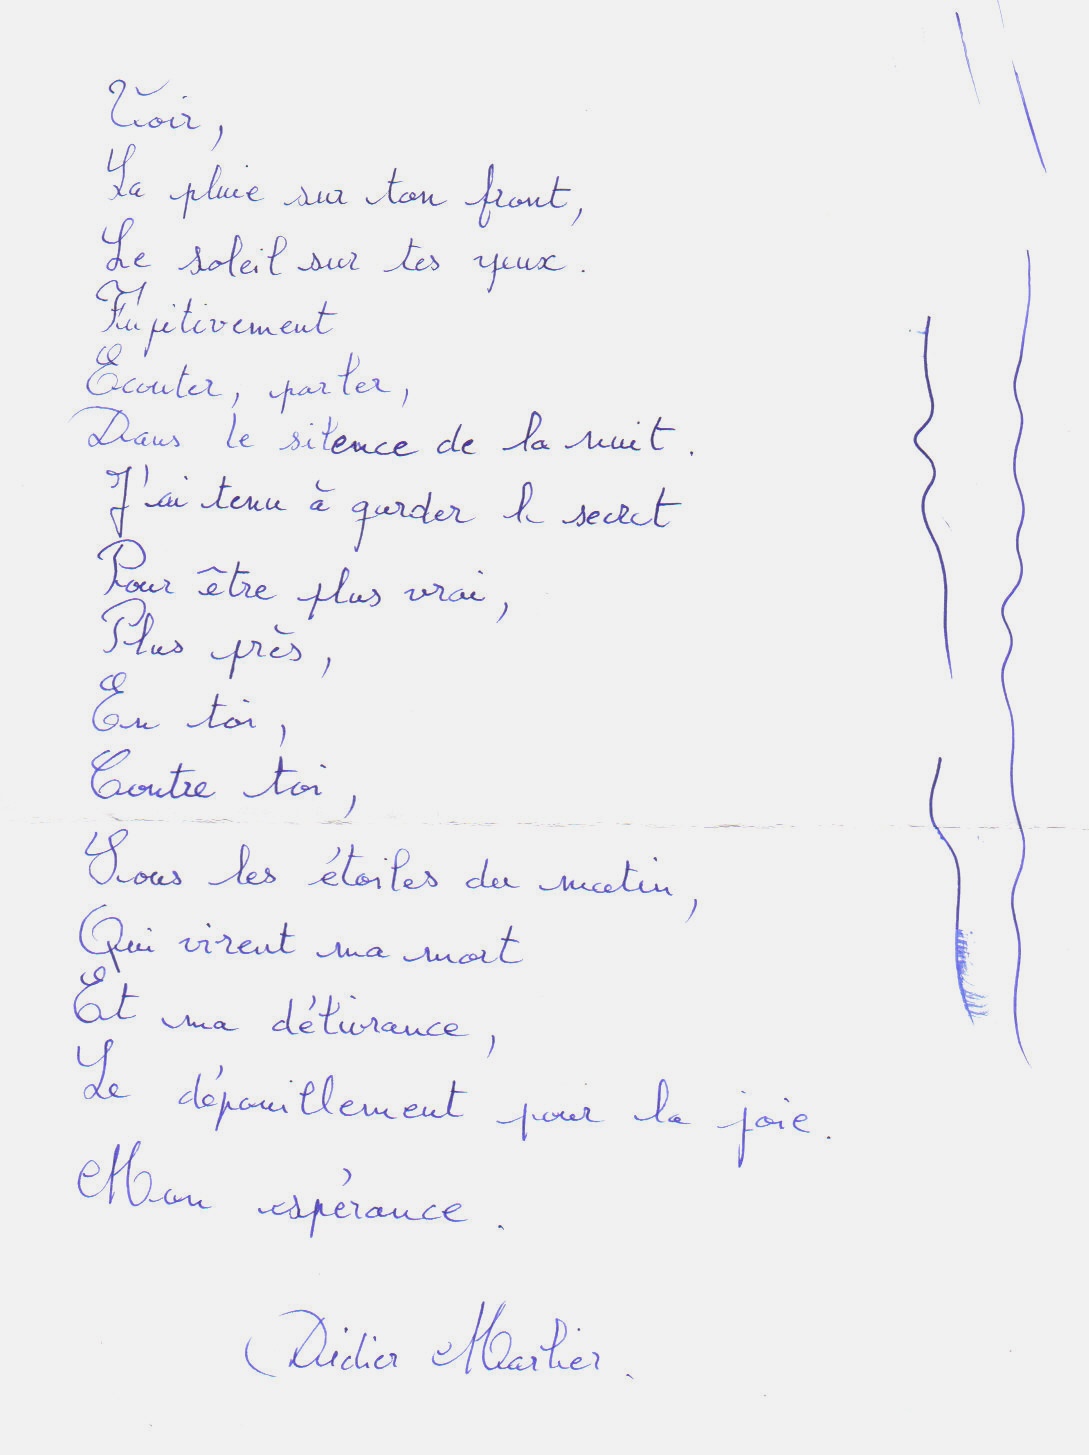 Voir,
La pluie sur ton front,
Le soleil sur tes yeux.
Fugitivement
Ecouter, parler,
Dans le silence de la nuit.
J'ai tenu à garder le secret
Pour être plus vrai,
Plus près,
En toi,
Contre toi,
Sous les étoiles du matin,
Qui virent ma mort
Et ma délivrance,
Le dépouillement pour la joie.
Mon espérance.
Didier Marlier.